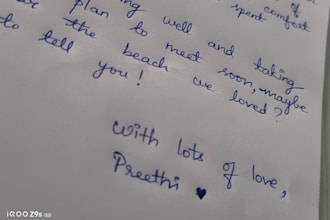 of
spent comfort
ing well and taking
plan to meet soon, maybe
the beach we loved?
to tell you!
With lots of love,
Preethi ♥
iQOO Z9s 5G